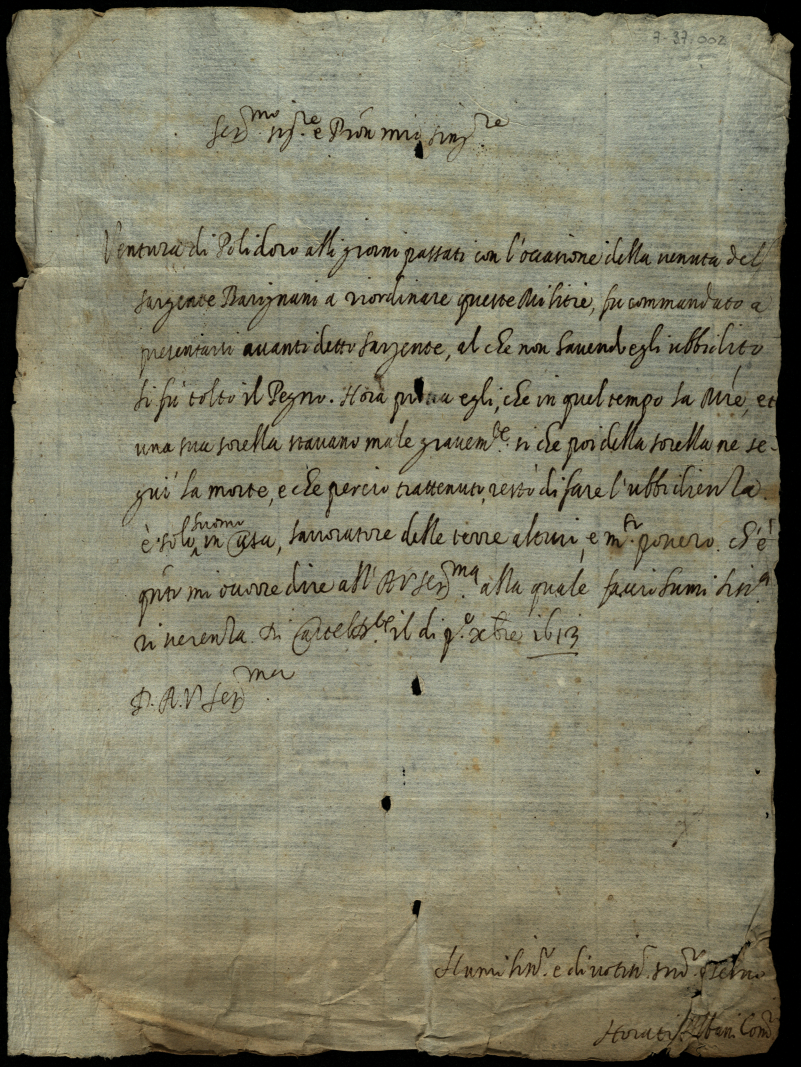 7-37.002
Ser.mo sig.re e Pron mio sing.re
Ventura di Polidoro alli giorni passati con l'occasione della venuta del
sargente Barignani a riordinare queste Militie, fu commandato a
presentarsi avanti detto sargente, al che non havend'egli ubbidito
li fù tolto il Pegno. Hora prova egli, che in quel tempo la M̃re, et
una sua sorella stavano male gravem.te si che poi della sorella ne se-
guì la morte, e che perciò trattenuto, restò di fare l'ubbidienza.
è solo huomo in casa, lavoratore delle terre altrui, e m.to povero. ch'è
q̃nto mi occorre dire all'A V Ser.ma alla quale faccio humilis.ma
riverenza. Di il dì p.o xbre 1613
D. A. V. Ser.ma
Humilis.o e divotis.o ser.re
Horatio Com.